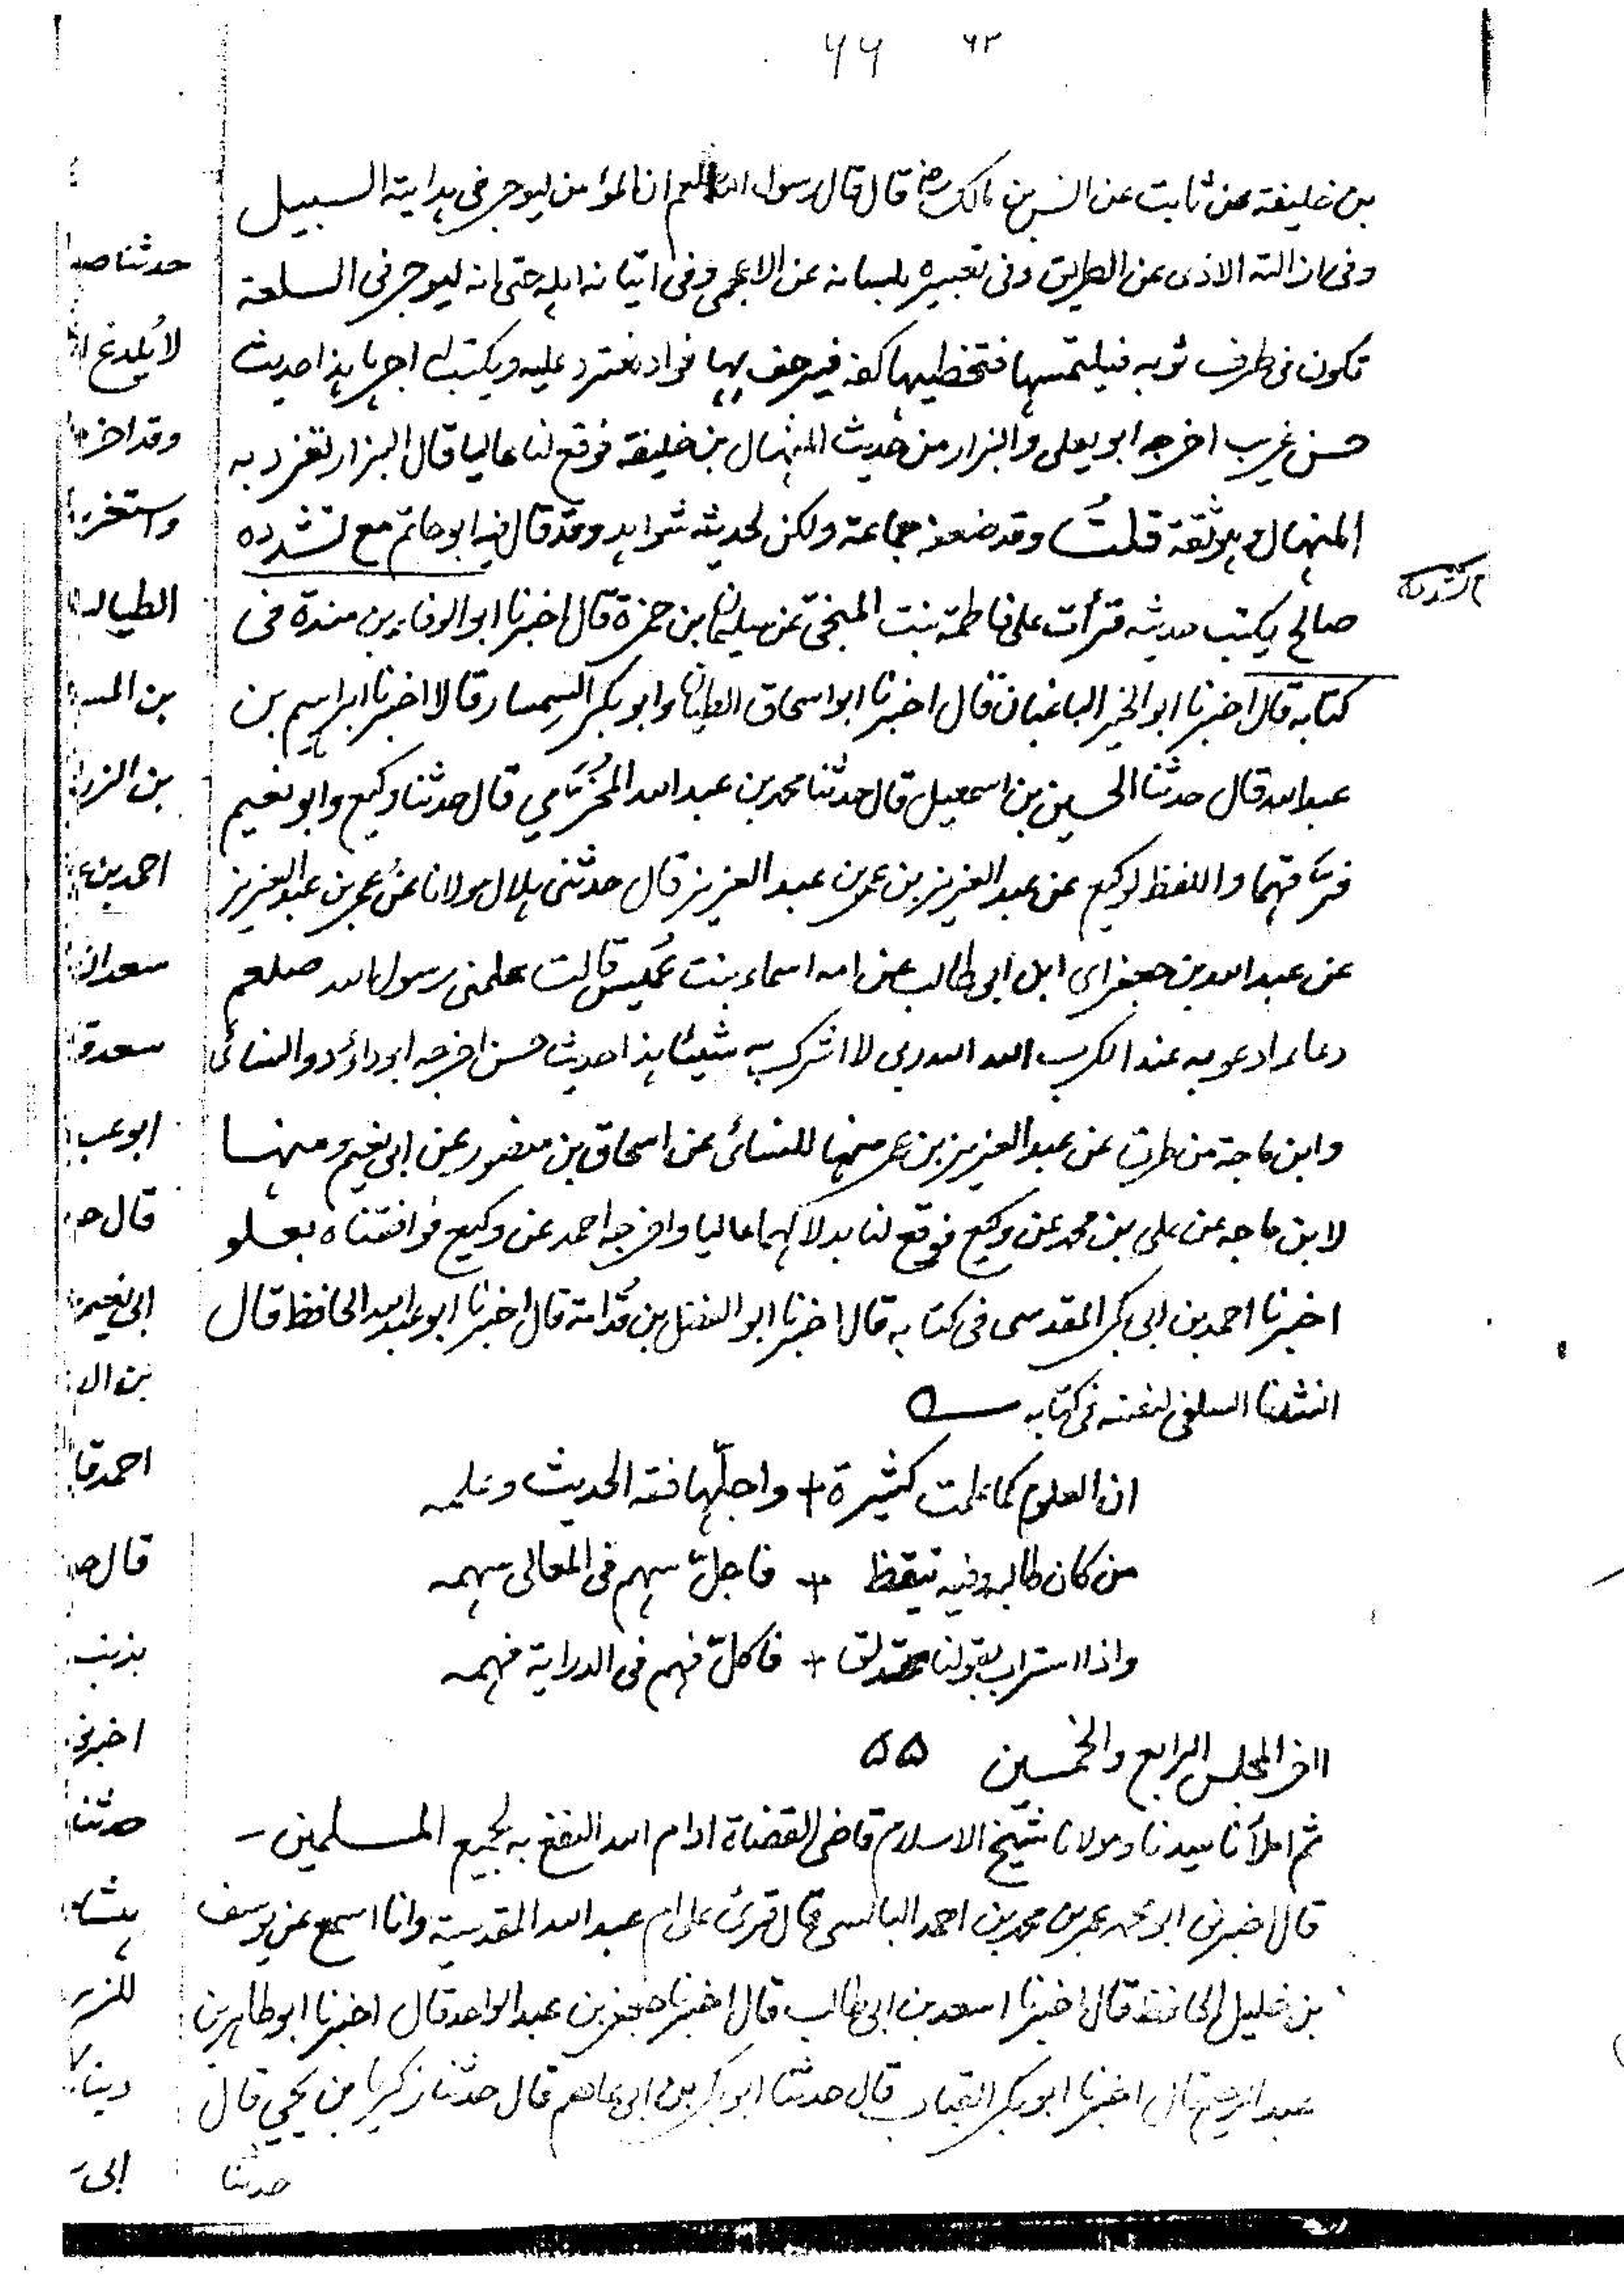 ۶۶ ۶۳
بن خليفة عن ثابت عن انس بن مالك رض قال قال رسول الله صلعم ان المؤمن ليوجر فى هداية السبيل
وفى ازالته الاذى عن الطريق وفى تعبيره بلسانه عن الاعجمى وفى اتيانه اهله حتى انه ليوجر فى السلعة
تكون فى طرف ثوبه فيلتمسها فتخطيها كفه فيرجف بها فواده فترد عليه ويكتب له اجرها هذا حديث
حسن غريب اخرجه ابو يعلى والبزار من حديث المنهال بن خليفة فوقع لنا عاليا قال البزار تفرد به
المنهال وهو ثقة قلت وقد ضعفه جماعة ولكن لحديثه شواهد وقد قال فيه ابو حاتم مع تشدده
صالح يكتب حديثه قرأت على فاطمة بنت المنجى عن سليمان بن حمزة قال اخبرنا ابو الوفاء بن مندة فى
كتابه قال اخبرنا ابو الخير الباغبان قال اخبرنا ابو اسحاق الطيان وابو بكر السمسار قالا اخبرنا ابراهيم بن
عبد الله قال حدثنا الحسين بن اسمعيل قال حدثنا محمد بن عبد الله المخرمي قال حدثنا وكيع وابو نعيم
فرقهما واللفظ لوكيع عن عبد العزيز بن عمر بن عبد العزيز قال حدثنى هلال مولانا عن عمر بن عبد العزيز
عن عبد الله بن جعفر اى ابن ابى طالب عن امه اسماء بنت عميس قالت علمنى رسول الله صلعم
دعاء ادعو به عند الكرب الله الله ربى لا اشرك به شيئا هذا حديث حسن اخرجه ابو داؤد والنسائى
وابن ماجة من طرق عن عبد العزيز بن عمر منها للنسائى عن اسحاق بن منصور عن ابى نعيم ومنها
لابن ماجه عن على بن محمد عن وكيع فوقع لنا بدلا لهما عاليا واخرجه احمد عن وكيع فوافقناه بعلو
اخبرنا احمد بن ابى بكر المقدسى فى كتابه قال اخبرنا ابو الفضل بن قدامة قال اخبرنا ابو عبد الله الحافظ قال
انشدنا السلفى لنفسه فى كتابه
ان العلوم كما علمت كثيرة + واجلّها فقه الحديث وعلمه
من كان طالبه وفيه تيقظ + فاجلّ سهم فى المعالى سهمه
واذا استراب بقولنا + فاكلّ فهم فى الدراية فهمه
اخر المجلس الرابع والخمسين ۵۵
ثم املأنا سيدنا ومولانا شيخ الاسلام قاضى القضاة ادام الله النفع به لجميع المسلمين
قال اخبرنى ابو محمد عمر بن محمد بن احمد البالسى قال قرئ على ام عبد الله المقدسية وانا اسمع عن يوسف
بن خليل الحافظ قال اخبرنا اسعد بن ابى طالب قال اخبرنا جعفر بن عبد الواحد قال اخبرنا ابو طاهر بن
عبد الرحيم قال اخبرنا ابو بكر القباب قال حدثنا ابو بكر بن ابى عاصم قال حدثنا زكريا بن يحيى قال
حدثنا
حدثنا
لا يلدغ
وقد اخر
واستغر
الطيال
بن المس
بن الزر
احمد بن
سعدان
سعد
ابو عب
قال
ابى نعيم
بن ال
احمد قا
قال
بزنب
اخبرنى
حدثنا
هشا
للزر
دينا
ابى